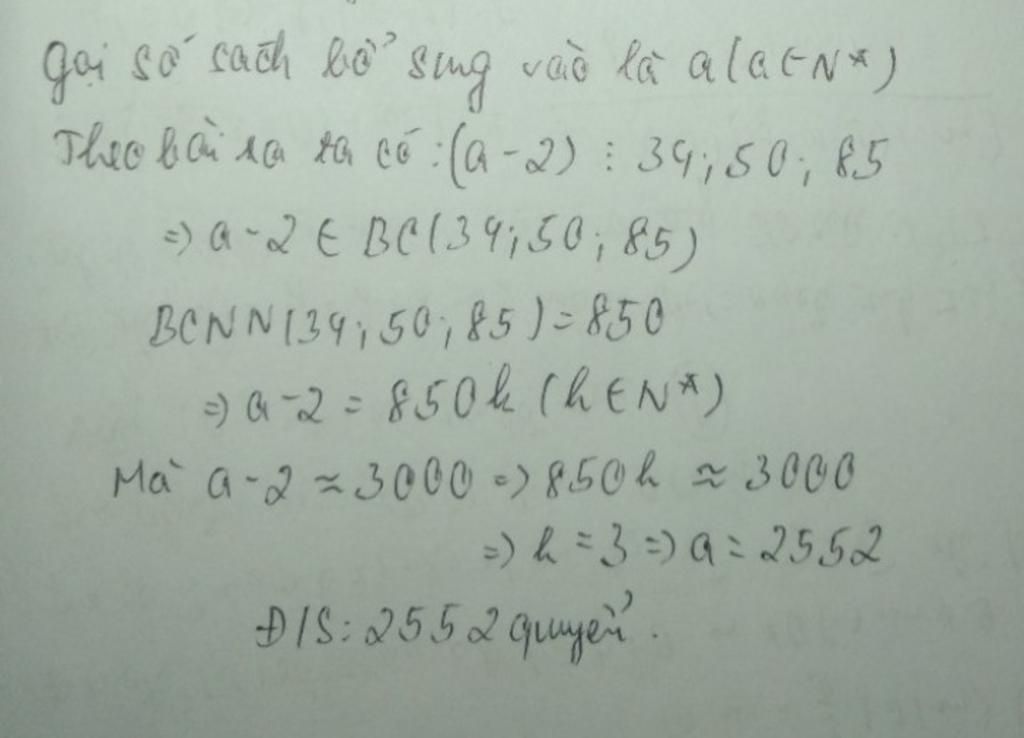 Gọi số sách bổ sung vào là a (a ∈ N*)
Theo bài ra ta có : (a - 2) ⋮ 34 ; 50 ; 85
=> a - 2 ∈ BC(34 ; 50 ; 85)
BCNN(34 ; 50 ; 85) = 850
=> a - 2 = 850k (k ∈ N*)
Mà a - 2 ≈ 3000 => 850k ≈ 3000
=> k = 3 => a = 2552
Đ/S : 2552 quyển.